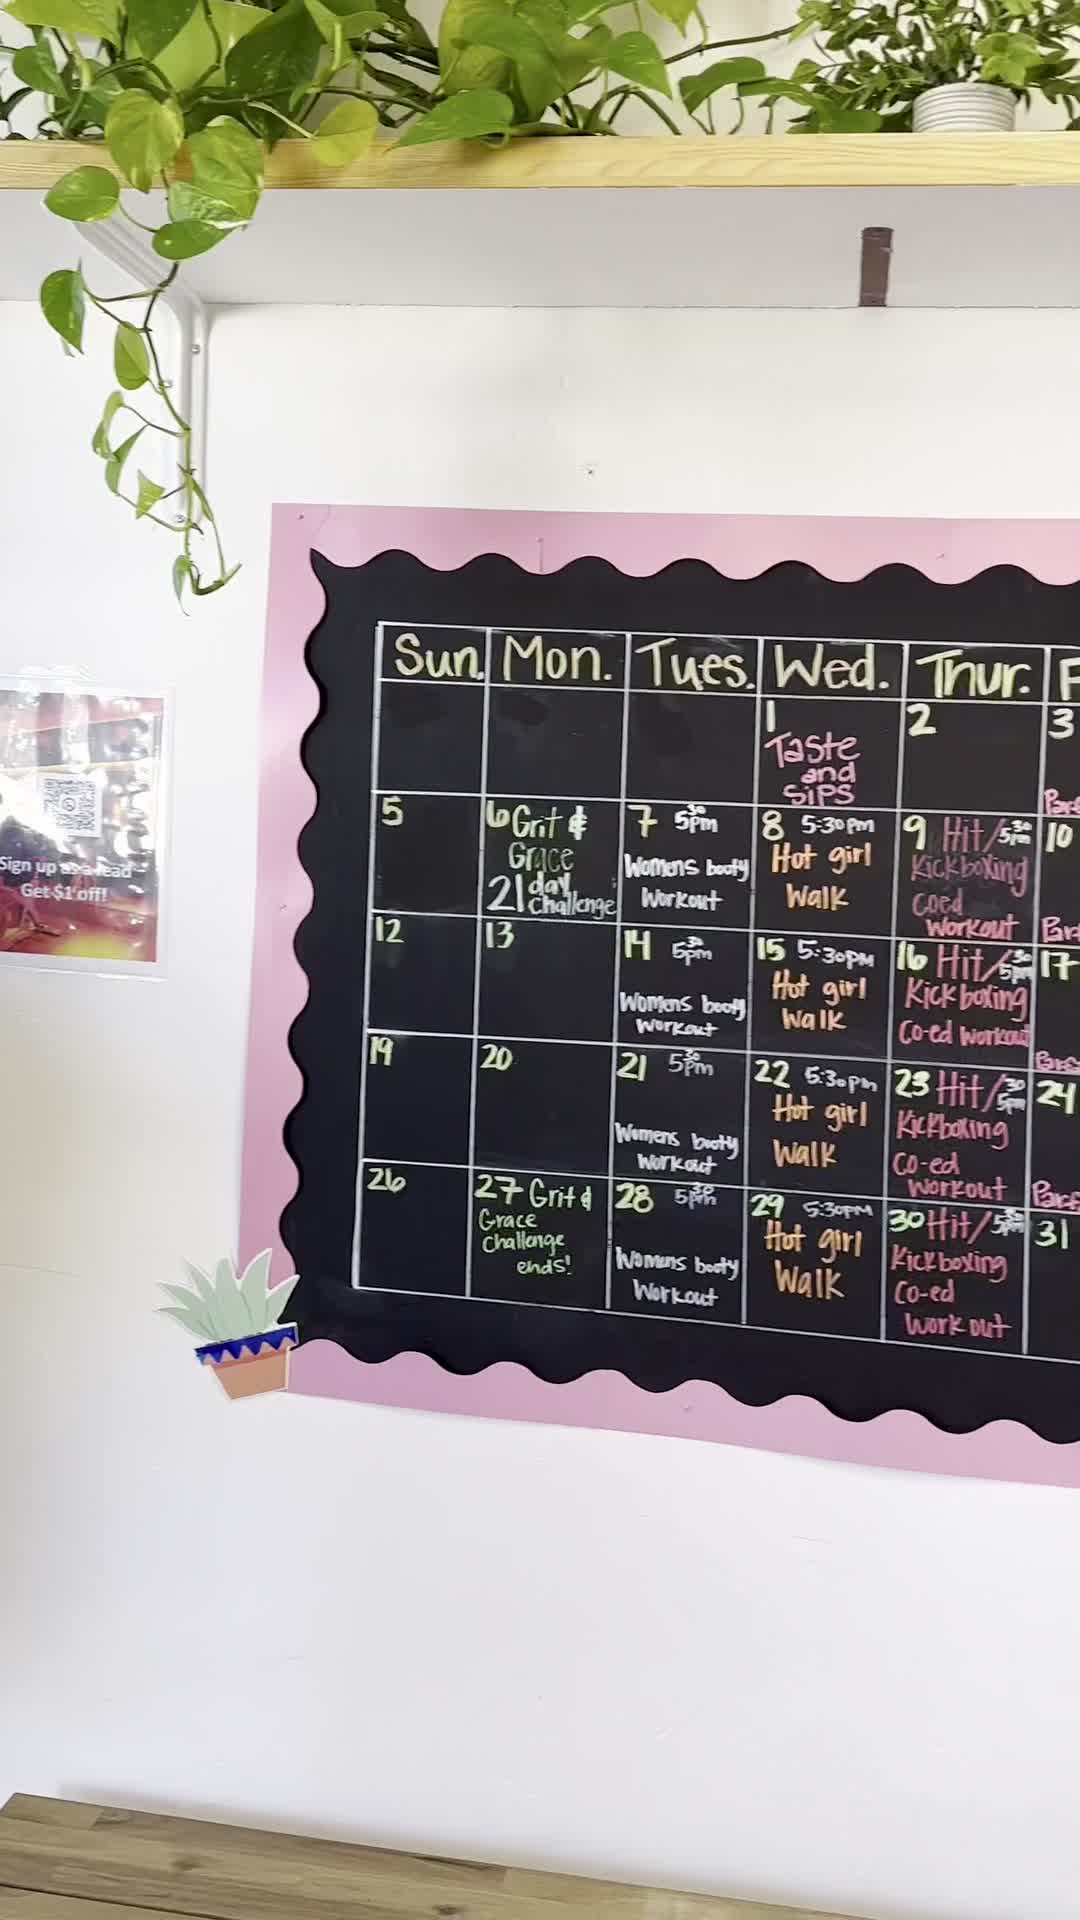 Sun. Mon. Tues. Wed. Thur. F
1 2 3
Taste
and
Sips
5
6 Grit &
Grace
21 day
Challenge
7 530pm
Womens booty
Workout
8 5:30pm
Hot girl
Walk
9 Hit/530pm
Kickboxing
Coed
Workout
10
12
13
14 530pm
Womens booty
Workout
15 5:30pm
Hot girl
Walk
16 Hit/530pm
Kickboxing
Co-ed Workout
17
19
20
21 530pm
Womens booty
Workout
22 5:30pm
Hot girl
Walk
23 Hit/530pm
Kickboxing
Co-ed
Workout
24
26
27 Grit &
Grace
Challenge
ends!
28 530pm
Womens booty
Workout
29 5:30pm
Hot girl
Walk
30 Hit/530pm
Kickboxing
Co-ed
Workout
31
Sign up as a lead
Get $1 off!